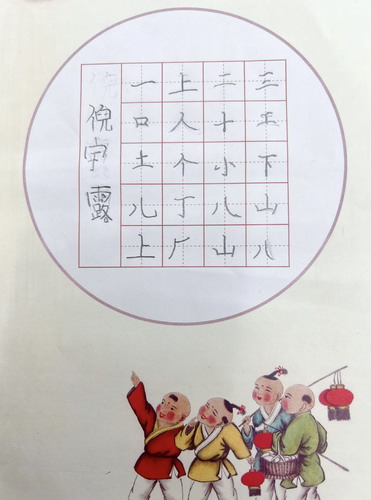 倪宇露
一上二三
口人十王
土个小下
儿丁八山
上厂山八